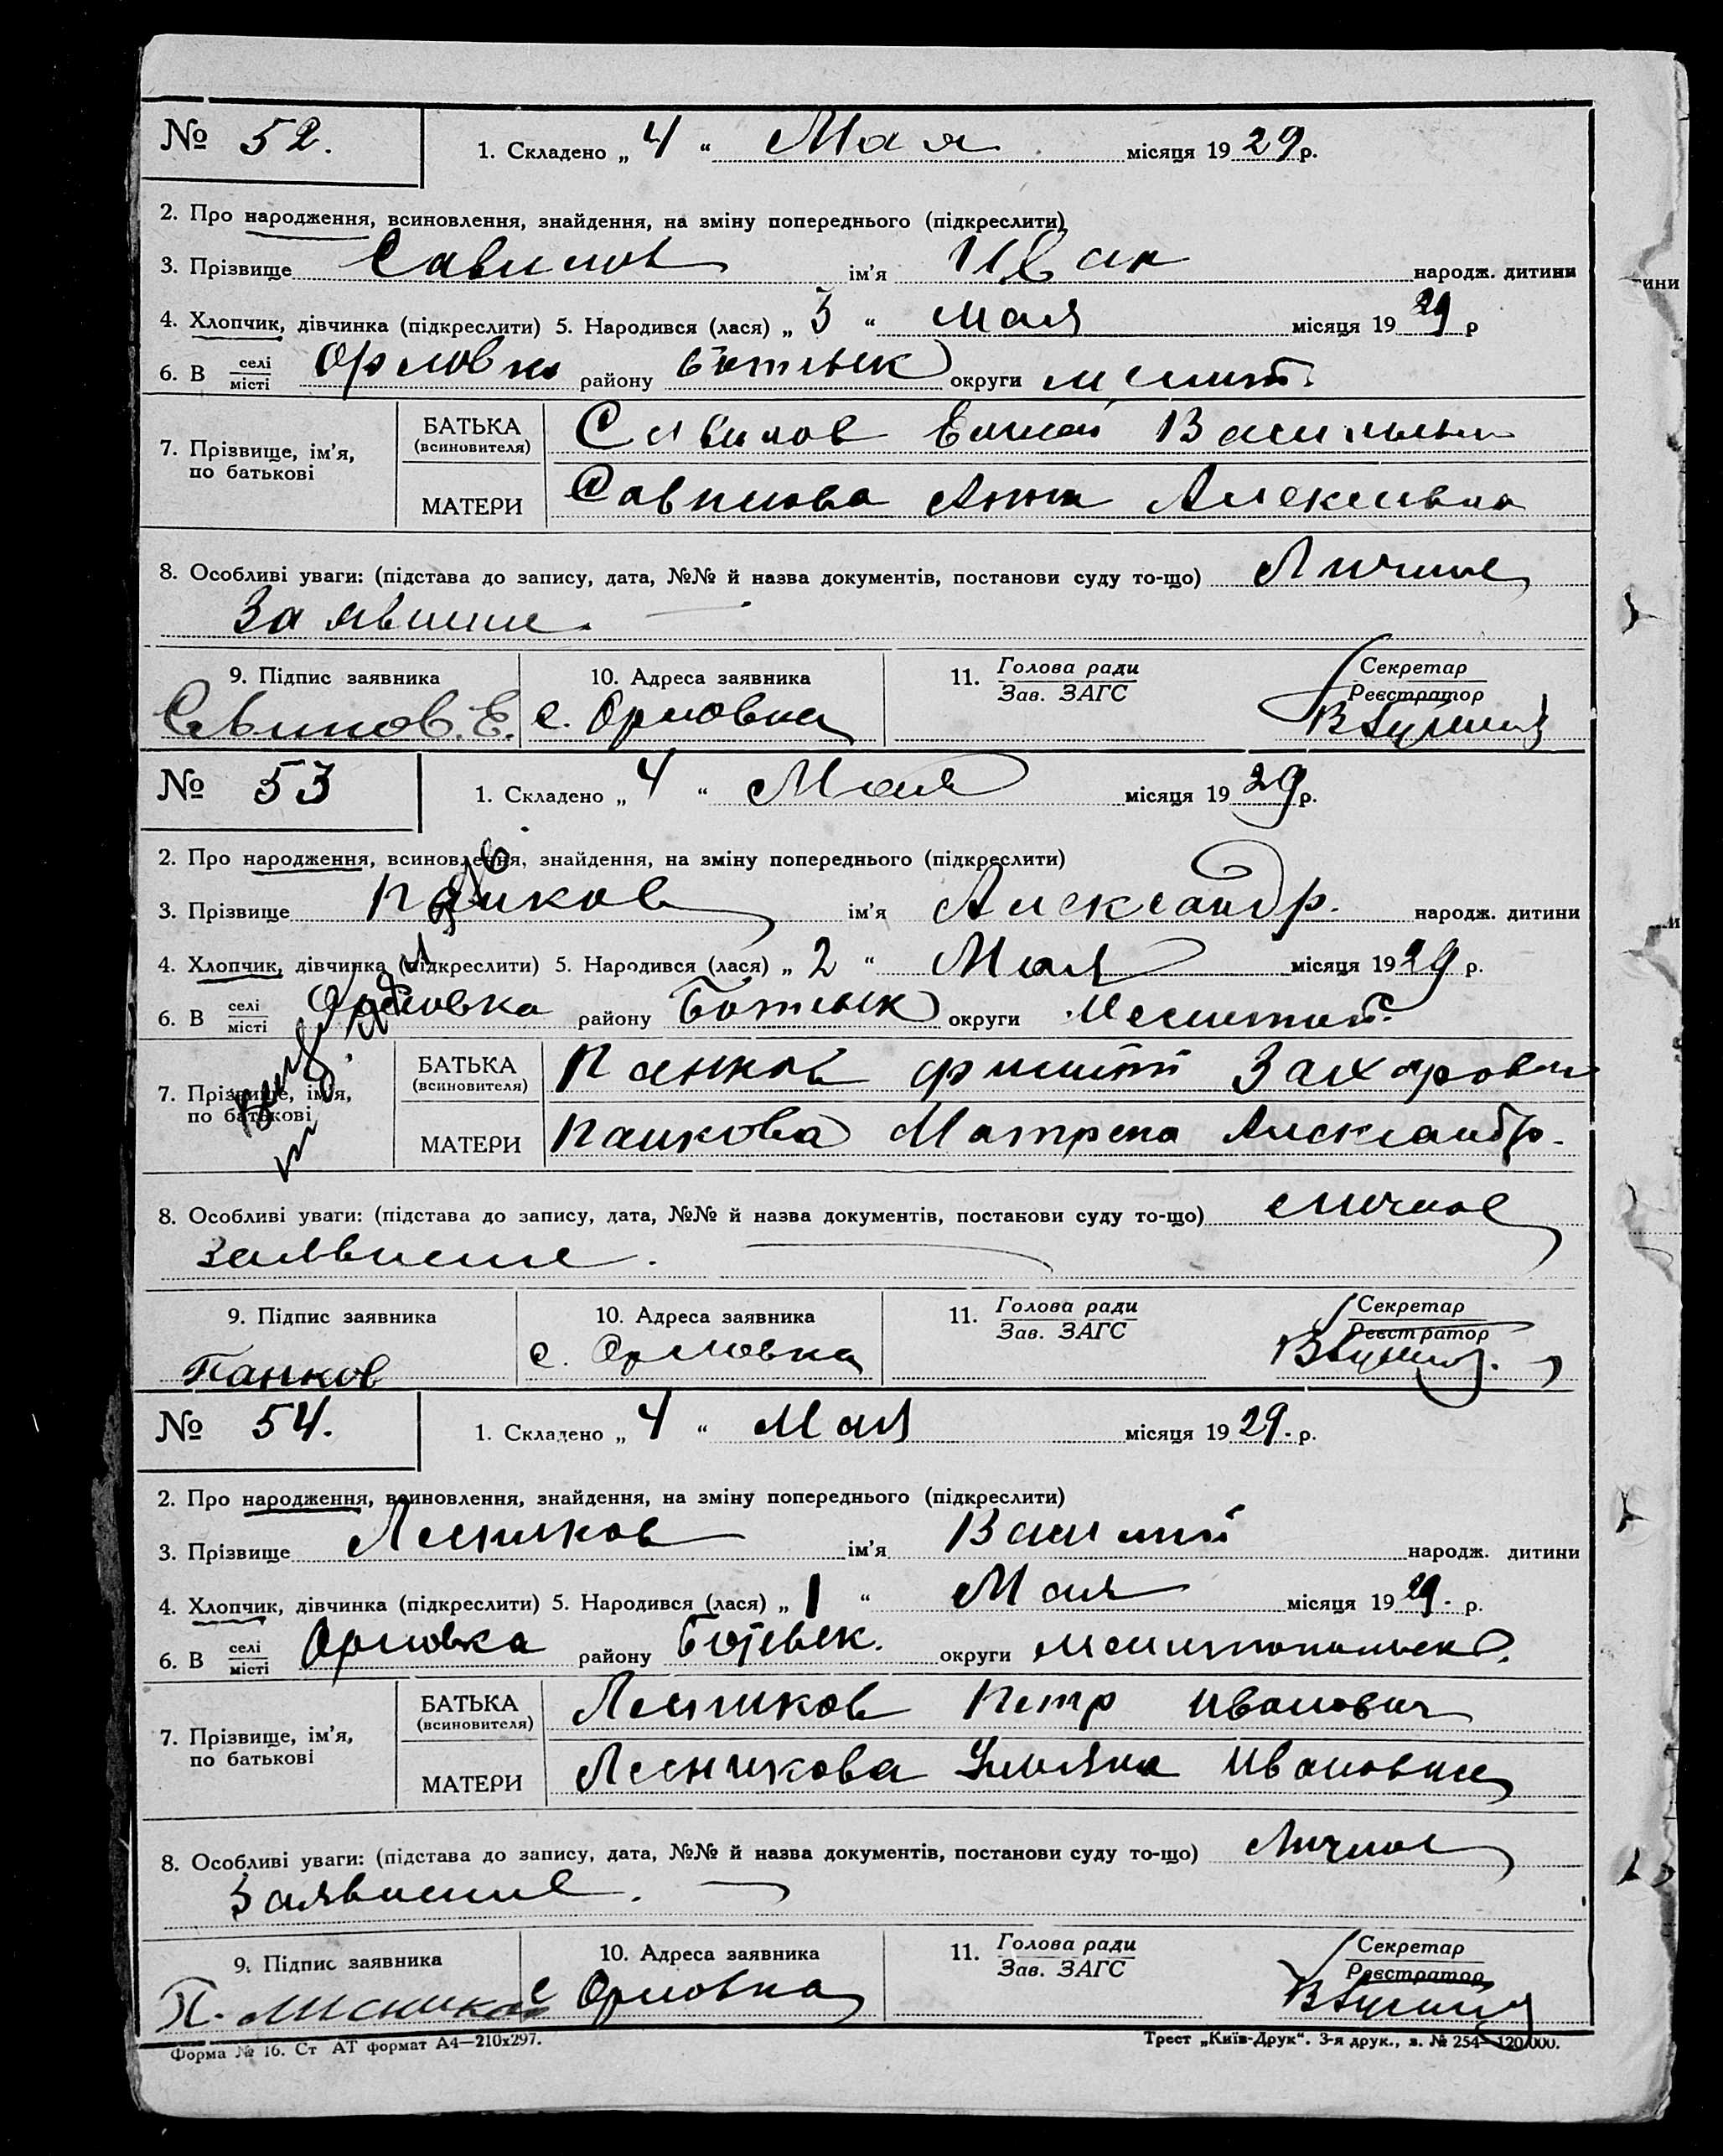 № 52. 1. Складено „ 4 “ Мая місяця 1929 р.
2. Про народження, всиновлення, знайдення, на зміну попереднього (підкреслити)
3. Прізвище Савилов ім'я Иван народж. дитини
4. Хлопчик, дівчинка (підкреслити) 5. Народився (лася) „ 3 “ мая місяця 1929 р
6. В селі місті Орловка району Ботьевск округи мелит.
7. Прізвище, ім'я, по батькові
БАТЬКА (всиновителя) Савилов Васильев
МАТЕРИ Савилова Анна Алексеевна
8. Особливі уваги: (підстава до запису, дата, №№ й назва документів, постанови суду то-що) Личное
Заявление.
9. Підпис заявника 10. Адреса заявника 11. Голова ради Зав. ЗАГС Секретар Реєстратор
Савилов. Е. с. Орловка
№ 53 1. Складено „ 4 “ Мая місяця 1929 р.
2. Про народження, всиновлення, знайдення, на зміну попереднього (підкреслити)
3. Прізвище Панков ім'я Александр. народж. дитини
4. Хлопчик, дівчинка (підкреслити) 5. Народився (лася) „ 2 “ Мая місяця 1929 р.
6. В селі місті Орловка району Ботьевск округи Мелитоп.
7. Прізвище, ім'я, по батькові
БАТЬКА (всиновителя) Панков Филипп Захарович
МАТЕРИ Панкова Матрена Александр.
8. Особливі уваги: (підстава до запису, дата, №№ й назва документів, постанови суду то-що) личное
заявление.
9. Підпис заявника 10. Адреса заявника 11. Голова ради Зав. ЗАГС Секретар Реєстратор
Панков с. Орловка
№ 54. 1. Складено „ 4 “ Мая місяця 1929. р.
2. Про народження, всиновлення, знайдення, на зміну попереднього (підкреслити)
3. Прізвище Лесников ім'я Василий народж. дитини
4. Хлопчик, дівчинка (підкреслити) 5. Народився (лася) „ 1 “ Мая місяця 1929. р.
6. В селі місті Орловка району Ботьевск. округи мелитопольск.
7. Прізвище, ім'я, по батькові
БАТЬКА (всиновителя) Лесников Петр Иванович
МАТЕРИ Лесникова Ульяна Ивановна
8. Особливі уваги: (підстава до запису, дата, №№ й назва документів, постанови суду то-що) Личное
Заявление.
9. Підпис заявника 10. Адреса заявника 11. Голова ради Зав. ЗАГС Секретар Реєстратор
П. Лисников с Орловка
Форма № 16. Ст АТ формат А4—210х297. Трест „Київ-Друк“. 3-я друк., з. № 254—120.000.